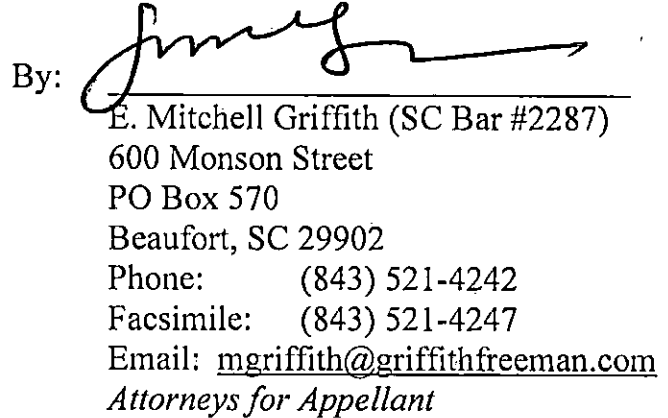 By:
E. Mitchell Griffith (SC Bar #2287)
600 Monson Street
PO Box 570
Beaufort, SC 29902
Phone: (843) 521-4242
Facsimile: (843) 521-4247
Email: mgriffith@griffithfreeman.com
Attorneys for Appellant